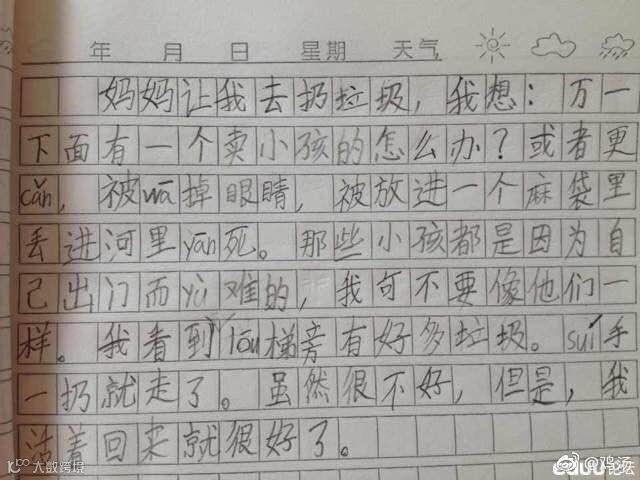 年 月 日 星期 天气
妈妈让我去扔垃圾，我想：万一
下面有一个卖小孩的怎么办？或者更
cǎn，被wā掉眼睛，被放进一个麻袋里
丢进河里yān死。那些小孩都是因为自
己出门而yù难的，我可不要像他们一
样。我看到lóu梯旁有好多垃圾。suí手
一扔就走了。虽然很不好，但是，我
活着回来就很好了。
@鸡汤
大数跨境
论坛